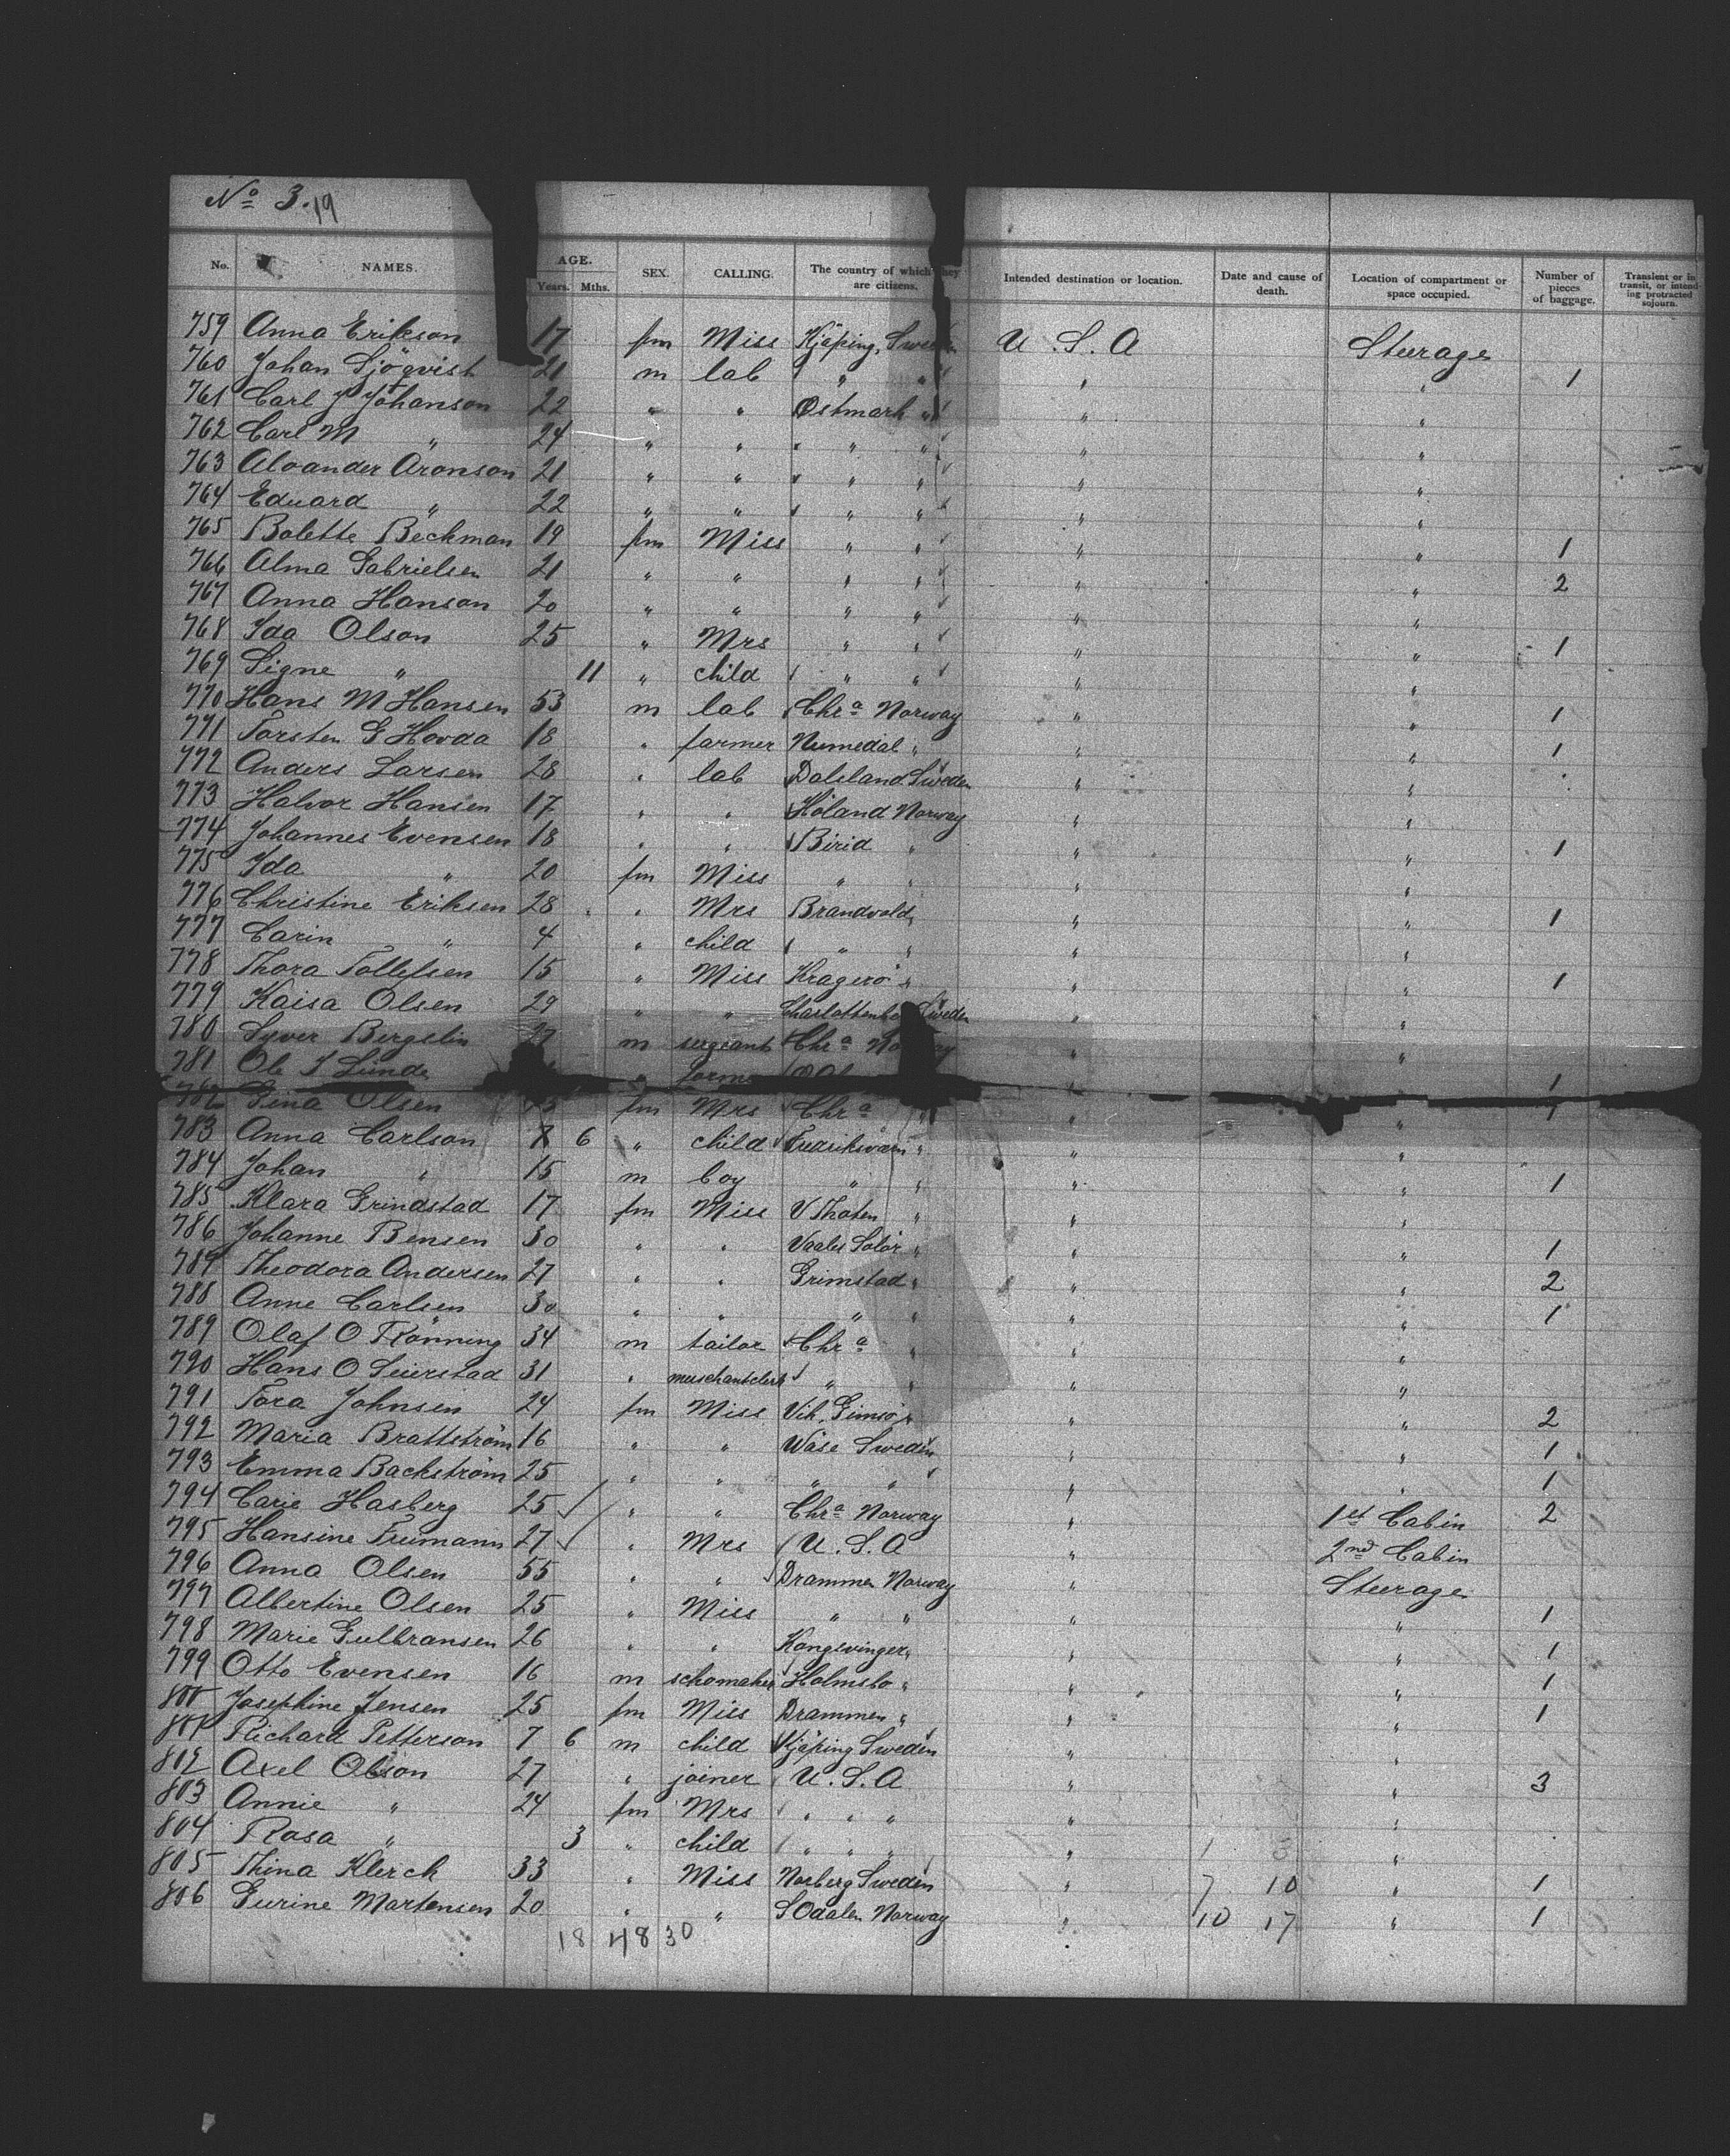 No 3. 19
No. NAMES. AGE. Years. Mths. SEX. CALLING. The country of which they are citizens. Intended destination or location. Date and cause of death. Location of compartment or space occupied. Number of pieces of baggage. Transient or in transit, or intending protracted sojourn.
759 Anna Erikson 17 fm Miss Kjöping, Sweden U.S.A Steerage
760 Johan Sjöqvist 21 m lab " " " " 1
761 Carl J Johanson 22 " " Östmark " " "
762 Carl M " 24 " " " " " "
763 Alvander Aronson 21 " " " " " "
764 Eduard " 22 " " " " " "
765 Bolette Beckman 19 fm Miss " " " " 1
766 Alma Gabrielsen 21 " " " " " " 2
767 Anna Hanson 20 " " " " " "
768 Ida Olson 25 " Mrs " " " " 1
769 Signe " 11 " child " " " "
770 Hans M Hansen 53 m lab Chra Norway " " 1
771 Torsten G Hovda 18 " farmer Numedal " " " 1
772 Anders Larsen 28 " lab Dalsland Sweden " "
773 Halvor Hansen 17 " " Höland Norway " "
774 Johannes Evensen 18 " " Birid " " " 1
775 Ida " 20 fm Miss " " " "
776 Christine Eriksen 28 " Mrs Brandvold " " " 1
777 Carin " 4 " child " " " "
778 Thora Tollefsen 15 " Miss Kragerö " " " 1
779 Kaisa Olsen 29 " " Sweden " "
780 Syver Bergelin 27 m sergeant Chra Norway " "
781 Ole J Lunde " " " 1
782 Gina Olsen fm Mrs Chra " " " 1
783 Anna Carlson 7 6 " child Fredriksværn " " "
784 Johan " 15 m boy " " " " 1
785 Klara Grindstad 17 fm Miss V Thoten " " "
786 Johanne Bensen 30 " " Vaaler Solör " " " 1
787 Theodora Andersen 27 " " Grimstad " " " 2
788 Anne Carlsen 30 " " " " " " 1
789 Olaf O Rönning 34 m tailor Chra " " "
790 Hans O Seierstad 31 " merschantclerk " " " "
791 Tora Johnsen 24 fm Miss Vik, Gimsö " " " 2
792 Maria Brattström 16 " " Wäse Sweden " " 1
793 Emma Backström 25 " " " " " " 1
794 Carie Hasberg 25 " " Chra Norway " 1st Cabin 2
795 Hansine Freimann 27 " Mrs U.S.A " 2nd Cabin
796 Anna Olsen 55 " " Drammen Norway " Steerage
797 Albertine Olsen 25 " Miss " " " " 1
798 Marie Gulbransen 26 " " Kongsvinger " " " 1
799 Otto Evensen 16 m schomaker Holmsbo " " " 1
800 Josephine Jensen 25 fm Miss Drammen " " " 1
801 Richard Petterson 7 6 m child Kjöping Sweden " "
802 Axel Olson 27 " joiner U.S.A " " 3
803 Annie " 24 fm Mrs " " " " "
804 Rosa " 3 " child " " " " "
805 Thina Klerck 33 " Miss Norberg Sweden " 7 10 " 1
806 Gurine Martensen 20 " " S Odalen Norway " 10 17 " 1
18 48 30